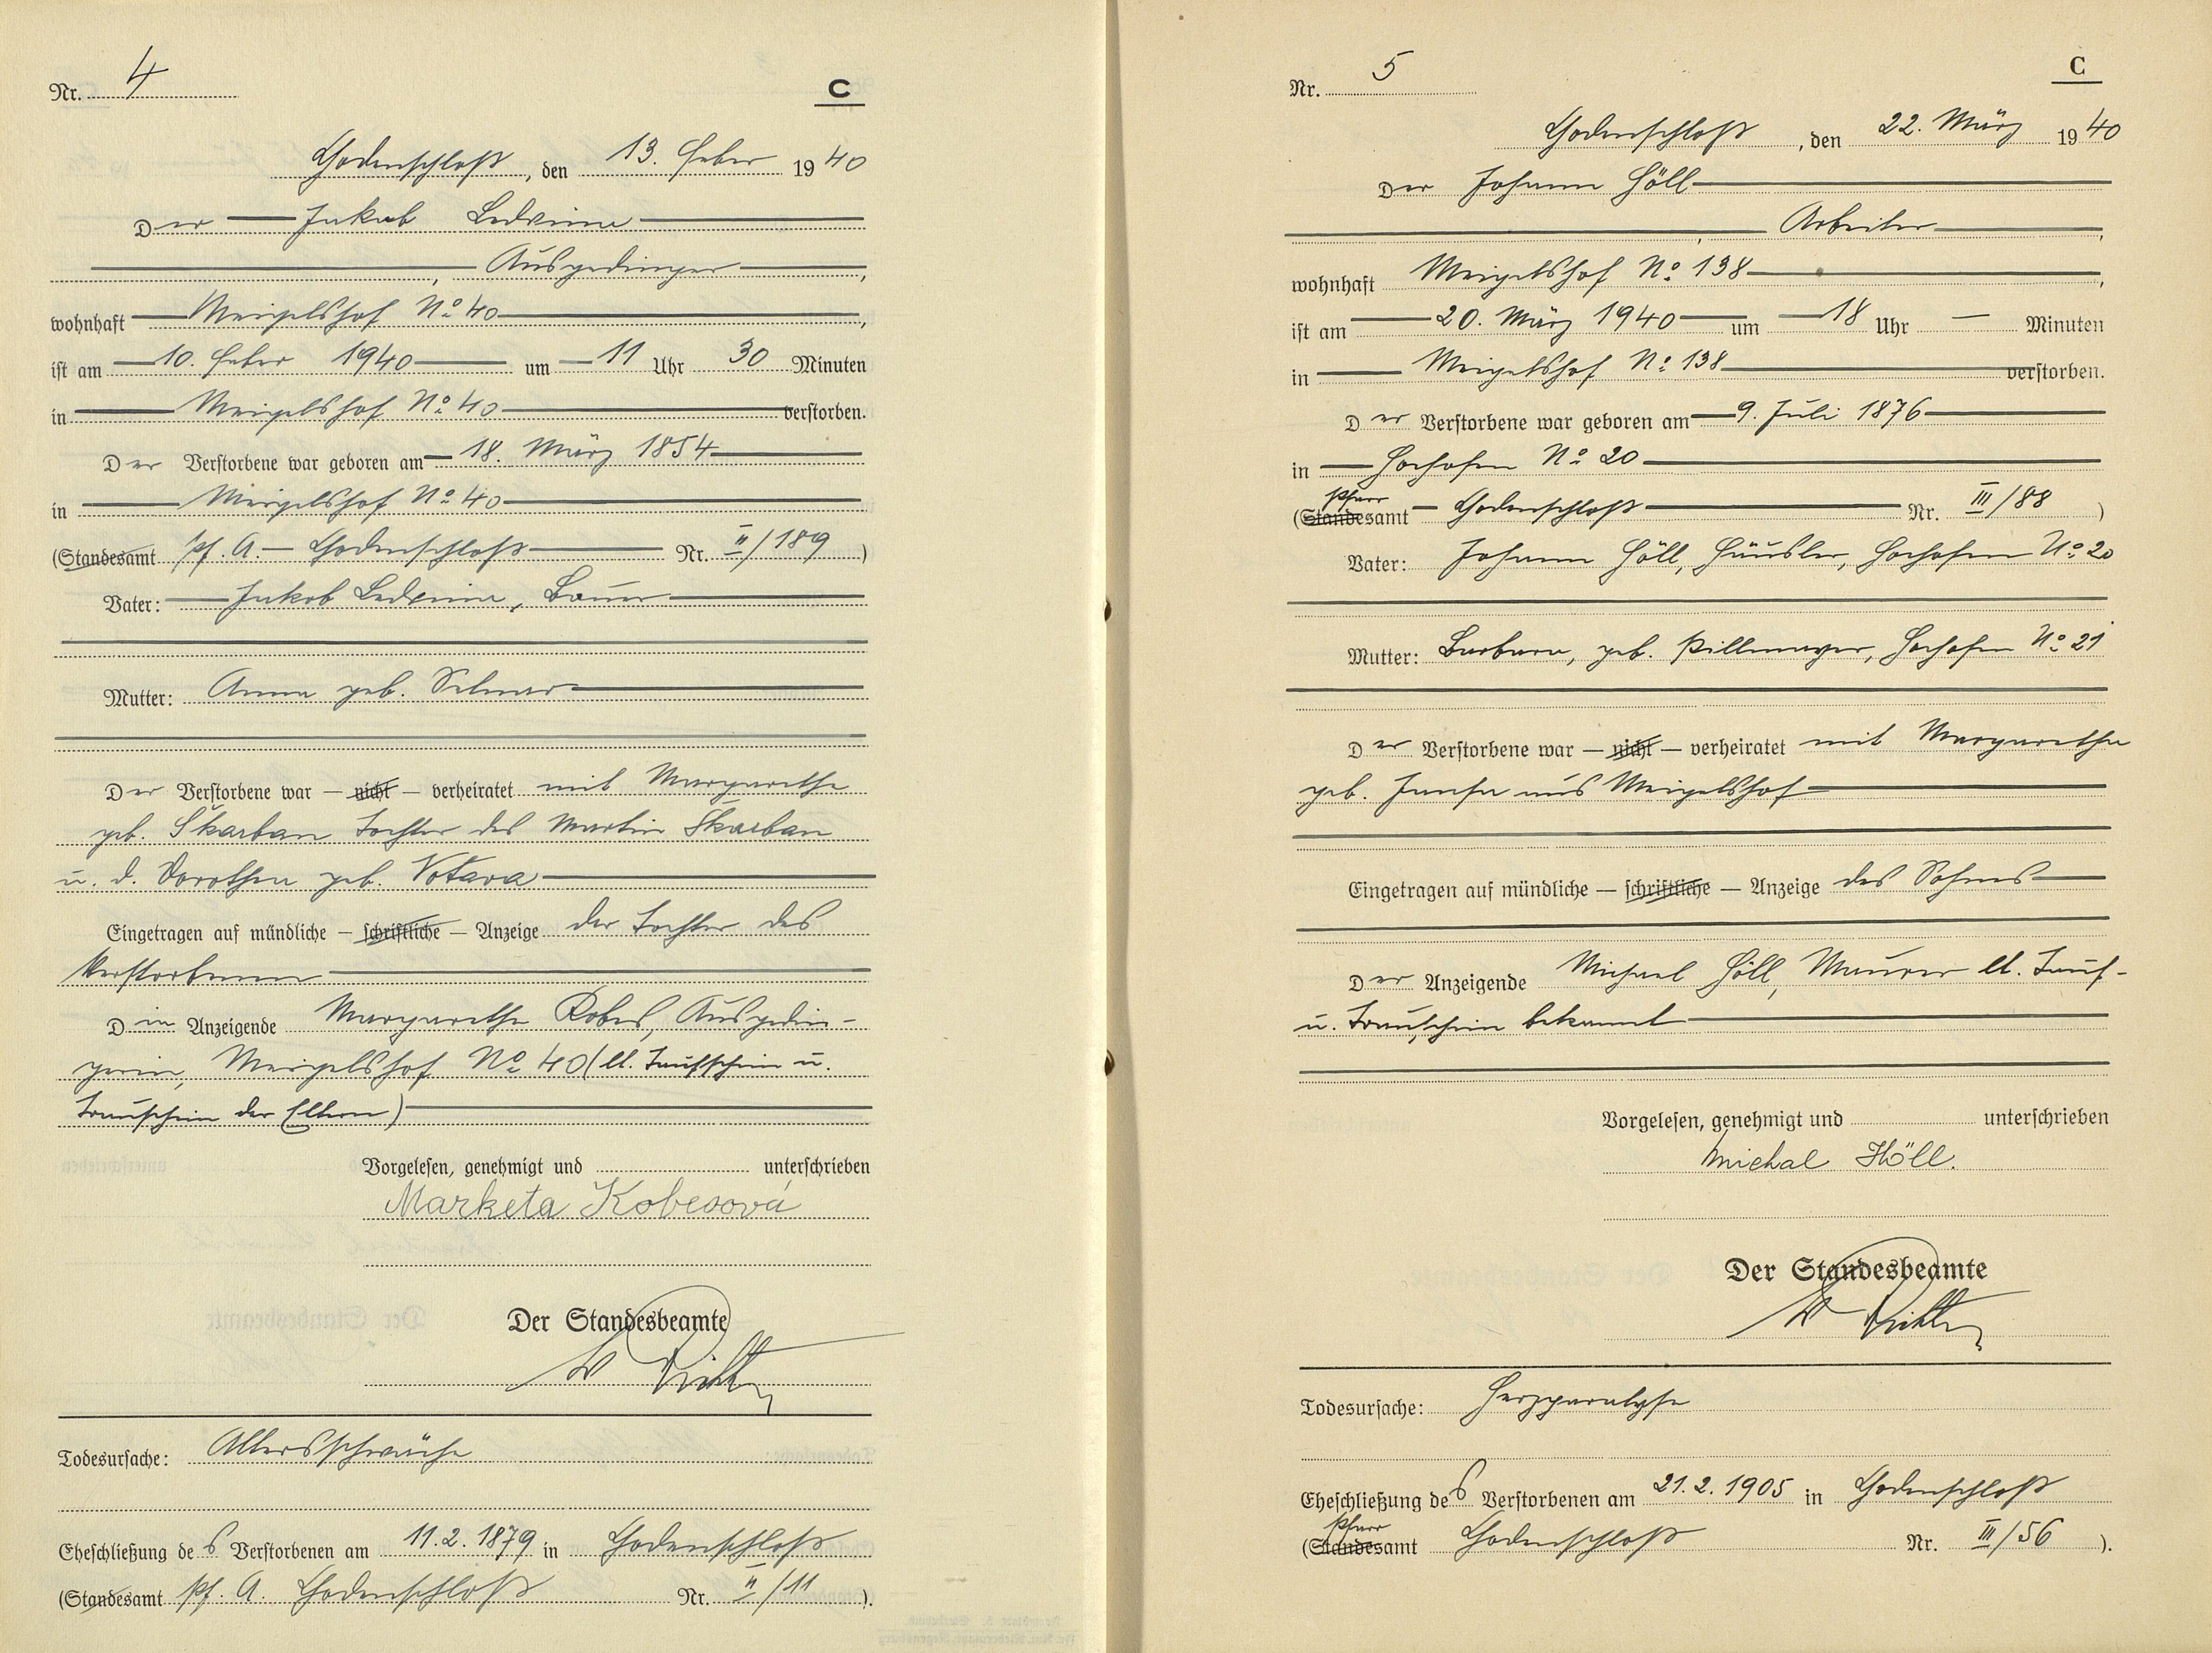 Nr. 4
C
Chodenschloß, den 13. Feber 1940
Der Jakob Ledvina
, Ausgedinger,
wohnhaft Meigelshof No 40,
ist am 10. Feber 1940 um 11 Uhr 30 Minuten
in Meigelshof No 40 verstorben.
Der Verstorbene war geboren am 18. März 1854
in Meigelshof No 40
(Standesamt Pf. A. Chodenschloß Nr. II/189)
Vater: Jakob Ledvina, Bauer
Mutter: Anna geb.
Der Verstorbene war — nicht — verheiratet mit Margarethe
geb. Škarban Tochter des Martin Škarban
u. d. Dorothea geb. Votava
Eingetragen auf mündliche — schriftliche — Anzeige der Tochter des
Verstorbenen
Die Anzeigende Margarethe Kobes, Ausgedin-
gerin, Meigelshof No 40 (lt. Taufschein u.
Trauschein der Eltern)
Vorgelesen, genehmigt und unterschrieben
Marketa Kobesová
Der Standesbeamte
Todesursache: Altersschwäche
Eheschließung des Verstorbenen am 11.2.1879 in Chodenschloß
(Standesamt Pf. A. Chodenschloß Nr. II/11).
Nr. 5
C
Chodenschloß, den 22. März 1940
Der Johann Höll
, Arbeiter,
wohnhaft Meigelshof No 138,
ist am 20. März 1940 um 18 Uhr — Minuten
in Meigelshof No 138 verstorben.
Der Verstorbene war geboren am 9. Juli 1876
in Hochofen No 20
Pfarr
(Standesamt Chodenschloß Nr. III/88)
Vater: Johann Höll, Häusler, Hochofen No 20
Mutter: Barbara, geb. Pillmayer, Hochofen No 21
Der Verstorbene war — nicht — verheiratet mit Margarethe
geb. aus Meigelshof
Eingetragen auf mündliche — schriftliche — Anzeige des Sohnes
Der Anzeigende Michael Höll, Maurer lt. Tauf-
u. Trauschein bekannt
Vorgelesen, genehmigt und unterschrieben
Michal Höll.
Der Standesbeamte
Todesursache: Herzparalyse
Eheschließung des Verstorbenen am 21.2.1905 in Chodenschloß
Pfarr
(Standesamt Chodenschloß Nr. III/56).